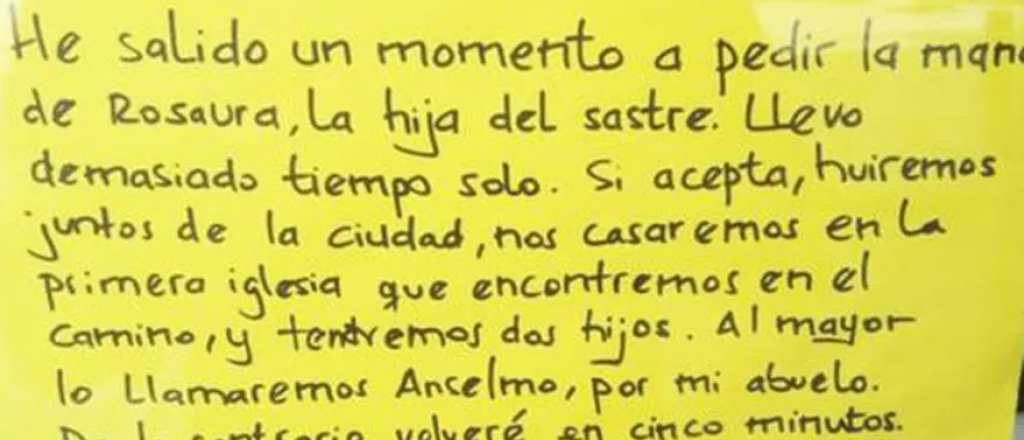 He salido un momento a pedir la mano
de Rosaura, la hija del sastre. Llevo
demasiado tiempo solo. Si acepta, huiremos
juntos de la ciudad, nos casaremos en la
primera iglesia que encontremos en el
camino, y tendremos dos hijos. Al mayor
lo llamaremos Anselmo, por mi abuelo.
De lo contrario volveré en cinco minutos.